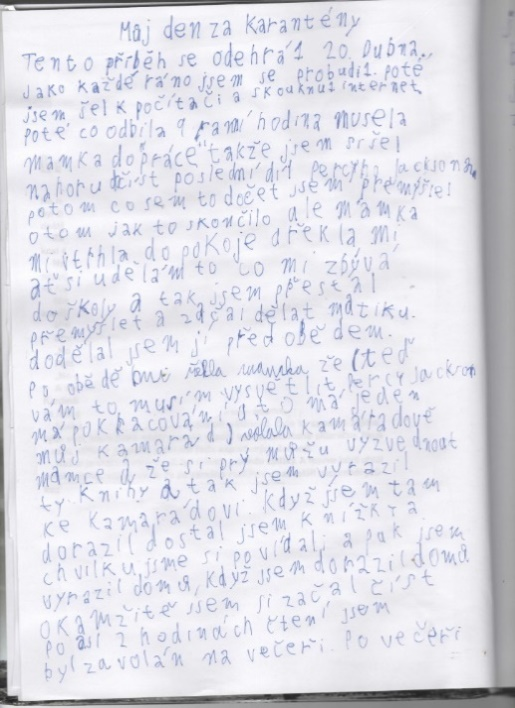 Můj den za Karantény
Tento příběh se odehrál 20. Dubna.,
jako každé ráno jsem se probudil. poté
jsem šel k počítači a skouknul internet,
poté co odbila 9 ranní hodina musela
mamka do práce takže jsem si šel
nahoru číst poslední díl percyho jacksona,
potom co sem to dočet jsem přemýšlel
otom jak to skončilo ale mamka
mi vtrhla do pokoje a řekla mi
ať si udělám to co mi zbývá
do školy a tak jsem přestal
přemyšlet a začal dělat matiku.
dodělal jsem ji před obě dem.
po obědě mi řekla mamka že (teď
vám to musím vysvětlit percy jackson
má pokračování a to má jeden
můj kamarád) volala kamarádově
mamce a že si prý mužu vyzvednout
ty knihy a tak jsem vyrazil
ke kamarádovi. Když jsem tam
dorazil dostal jsem knížky a
chvilku jsme si povídali a pak jsem
vyrazil domu, když jsem dorazil domů
okamžitě jsem si začal číst
po asi 2 hodinách čtení jsem
byl zavolán na večeři. Po večeři